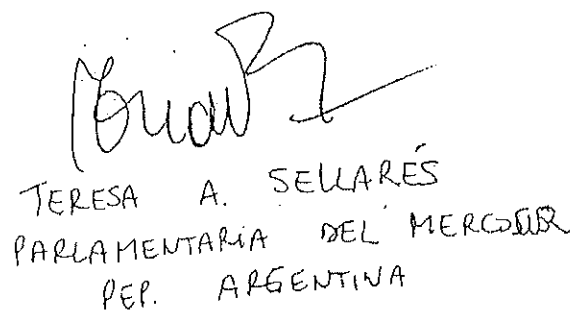 TERESA A. SELLARÉS
PARLAMENTARIA DEL MERCOSUR
PEP. ARGENTINA